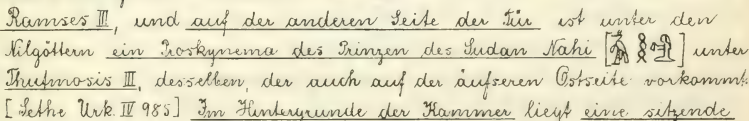 Ramses III, und auf der anderen Seite der Tür ist unter den
Nilgöttern ein Proskynema des Prinzen des Sudan Nahi [] unter
Thutmosis III, desselben, der auch auf der äußeren Ostseite vorkommt.
[Sethe Urk. IV 985] Im Hintergrunde der Kammer liegt eine sitzende